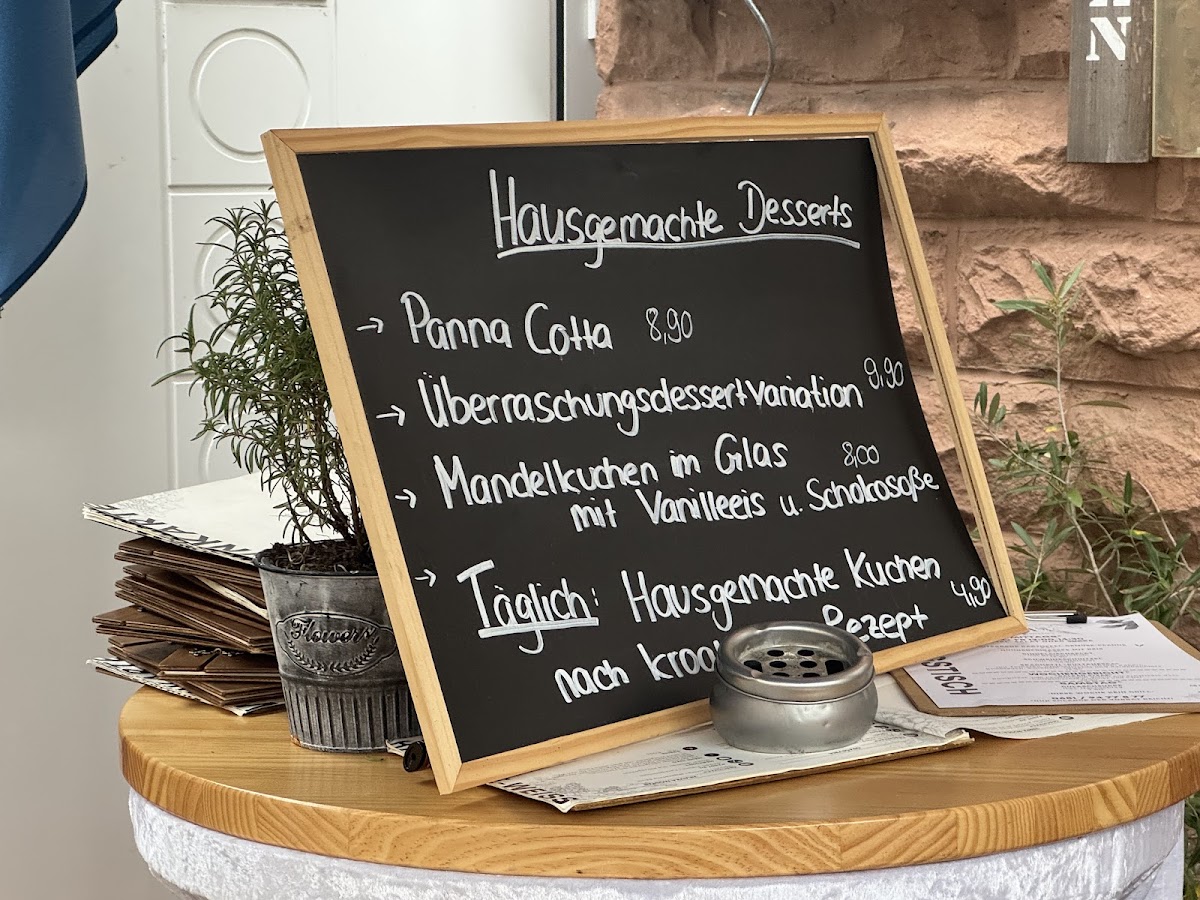 N
Hausgemachte Desserts
→ Panna Cotta 8,90
→ Überraschungsdessertvariation 9,90
→ Mandelkuchen im Glas 8,00
mit Vanilleeis u. Schokosoße
→ Täglich: Hausgemachte Kuchen 4,90
nach Rezept
Flowers